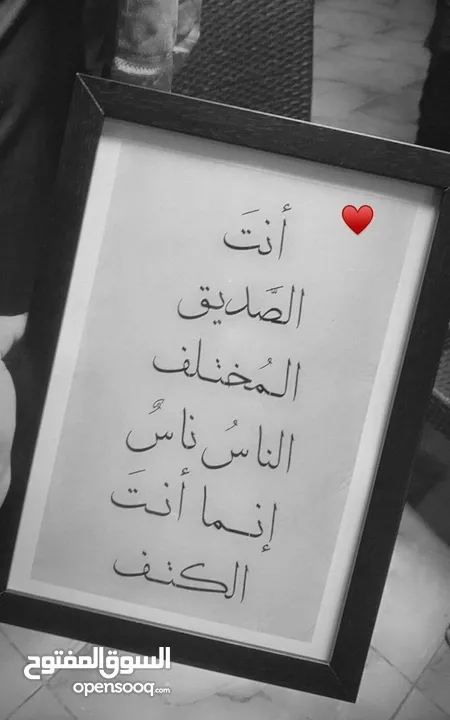 أنتَ
الصَّديق
المُختلف
الناسُ ناسٌ
إنما أنتَ
الكتف
السوق المفتوح
opensooq.com